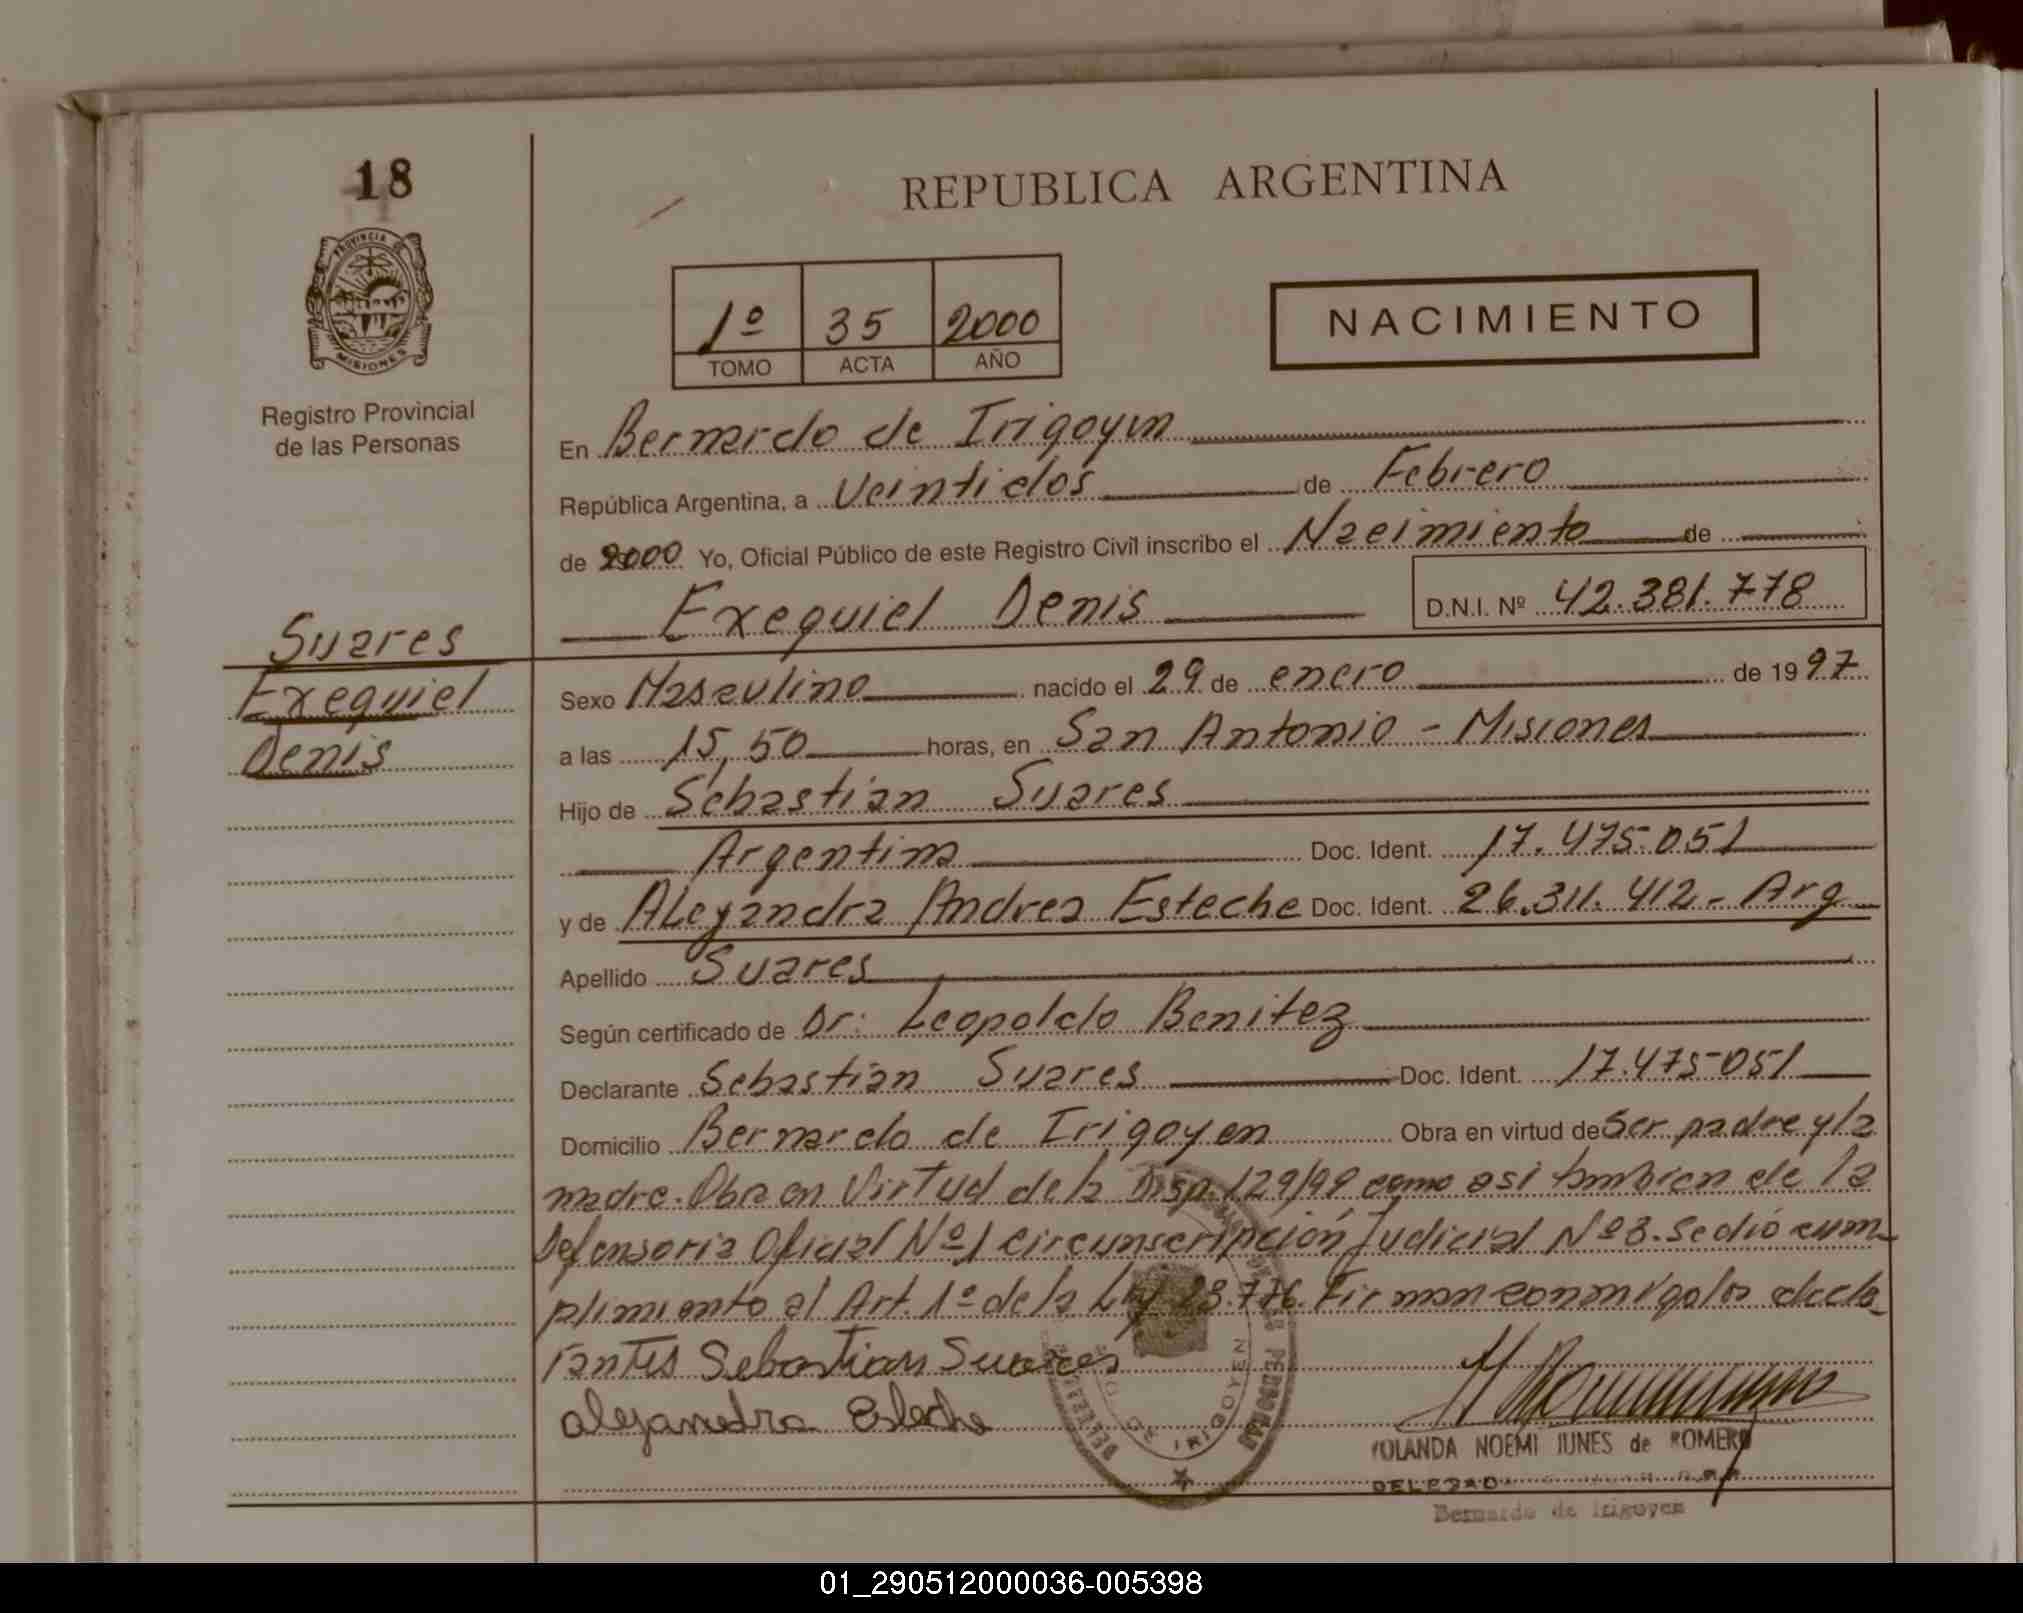 18
REPUBLICA ARGENTINA
PROVINCIA DE
MISIONES
1º 35 2000
TOMO ACTA AÑO
NACIMIENTO
Registro Provincial
de las Personas
En Bernardo de Irigoyen
República Argentina, a Veintidos de Febrero
de 2000 Yo, Oficial Público de este Registro Civil inscribo el Nacimiento de
Exequiel Denis D.N.I. Nº 42.381.778
Suares
Exequiel
Denis
Sexo Masculino nacido el 29 de enero de 1997
a las 15,50 horas, en San Antonio - Misiones
Hijo de Sebastian Suares
Argentina Doc. Ident. 17.475.051
y de Alejandra Andrea Esteche Doc. Ident. 26.311.412 - Arg
Apellido Suares
Según certificado de Dr. Leopoldo Benitez
Declarante Sebastian Suares Doc. Ident. 17.475-051
Domicilio Bernardo de Irigoyen Obra en virtud de Ser padre y la
madre. Obra en Virtud de la Disp. 129/99 como asi tambien de la
Defensoria Oficial Nº1 Circunscripción Judicial Nº3. Se dió cum-
plimiento al Art. 1º de la Ley 23.776. Firman conmigo los decla
rantes Sebastian Suares
alejandra Esteche
DE IRIGOYEN
YOLANDA NOEMI IUNES de ROMERO
Bernardo de Irigoyen
01_290512000036-005398